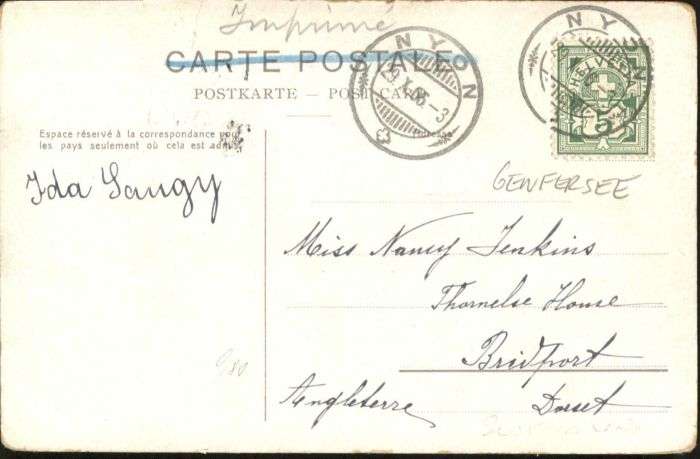 Imprimé
CARTE POSTALE
POSTKARTE – POST CARD
NYON
X.05.-3
NYON
HELVETIA
5
Espace réservé à la correspondance pour
les pays seulement où cela est admis
Adresse
GENFERSEE
Ida Saugy
Miss Nancy Jenkins
House
Bridport
Angleterre Dorset